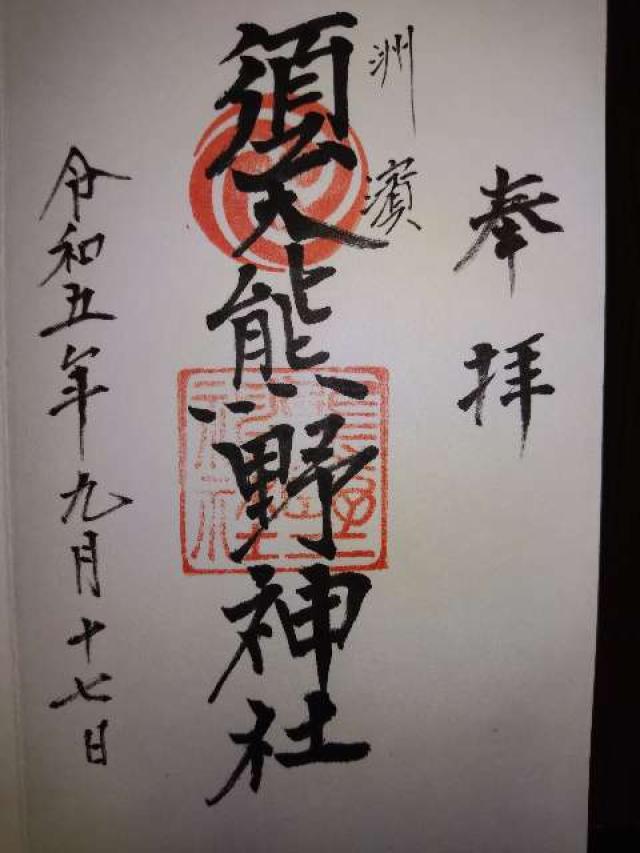 奉拝
洲濱
須天熊野神社
令和五年九月十七日